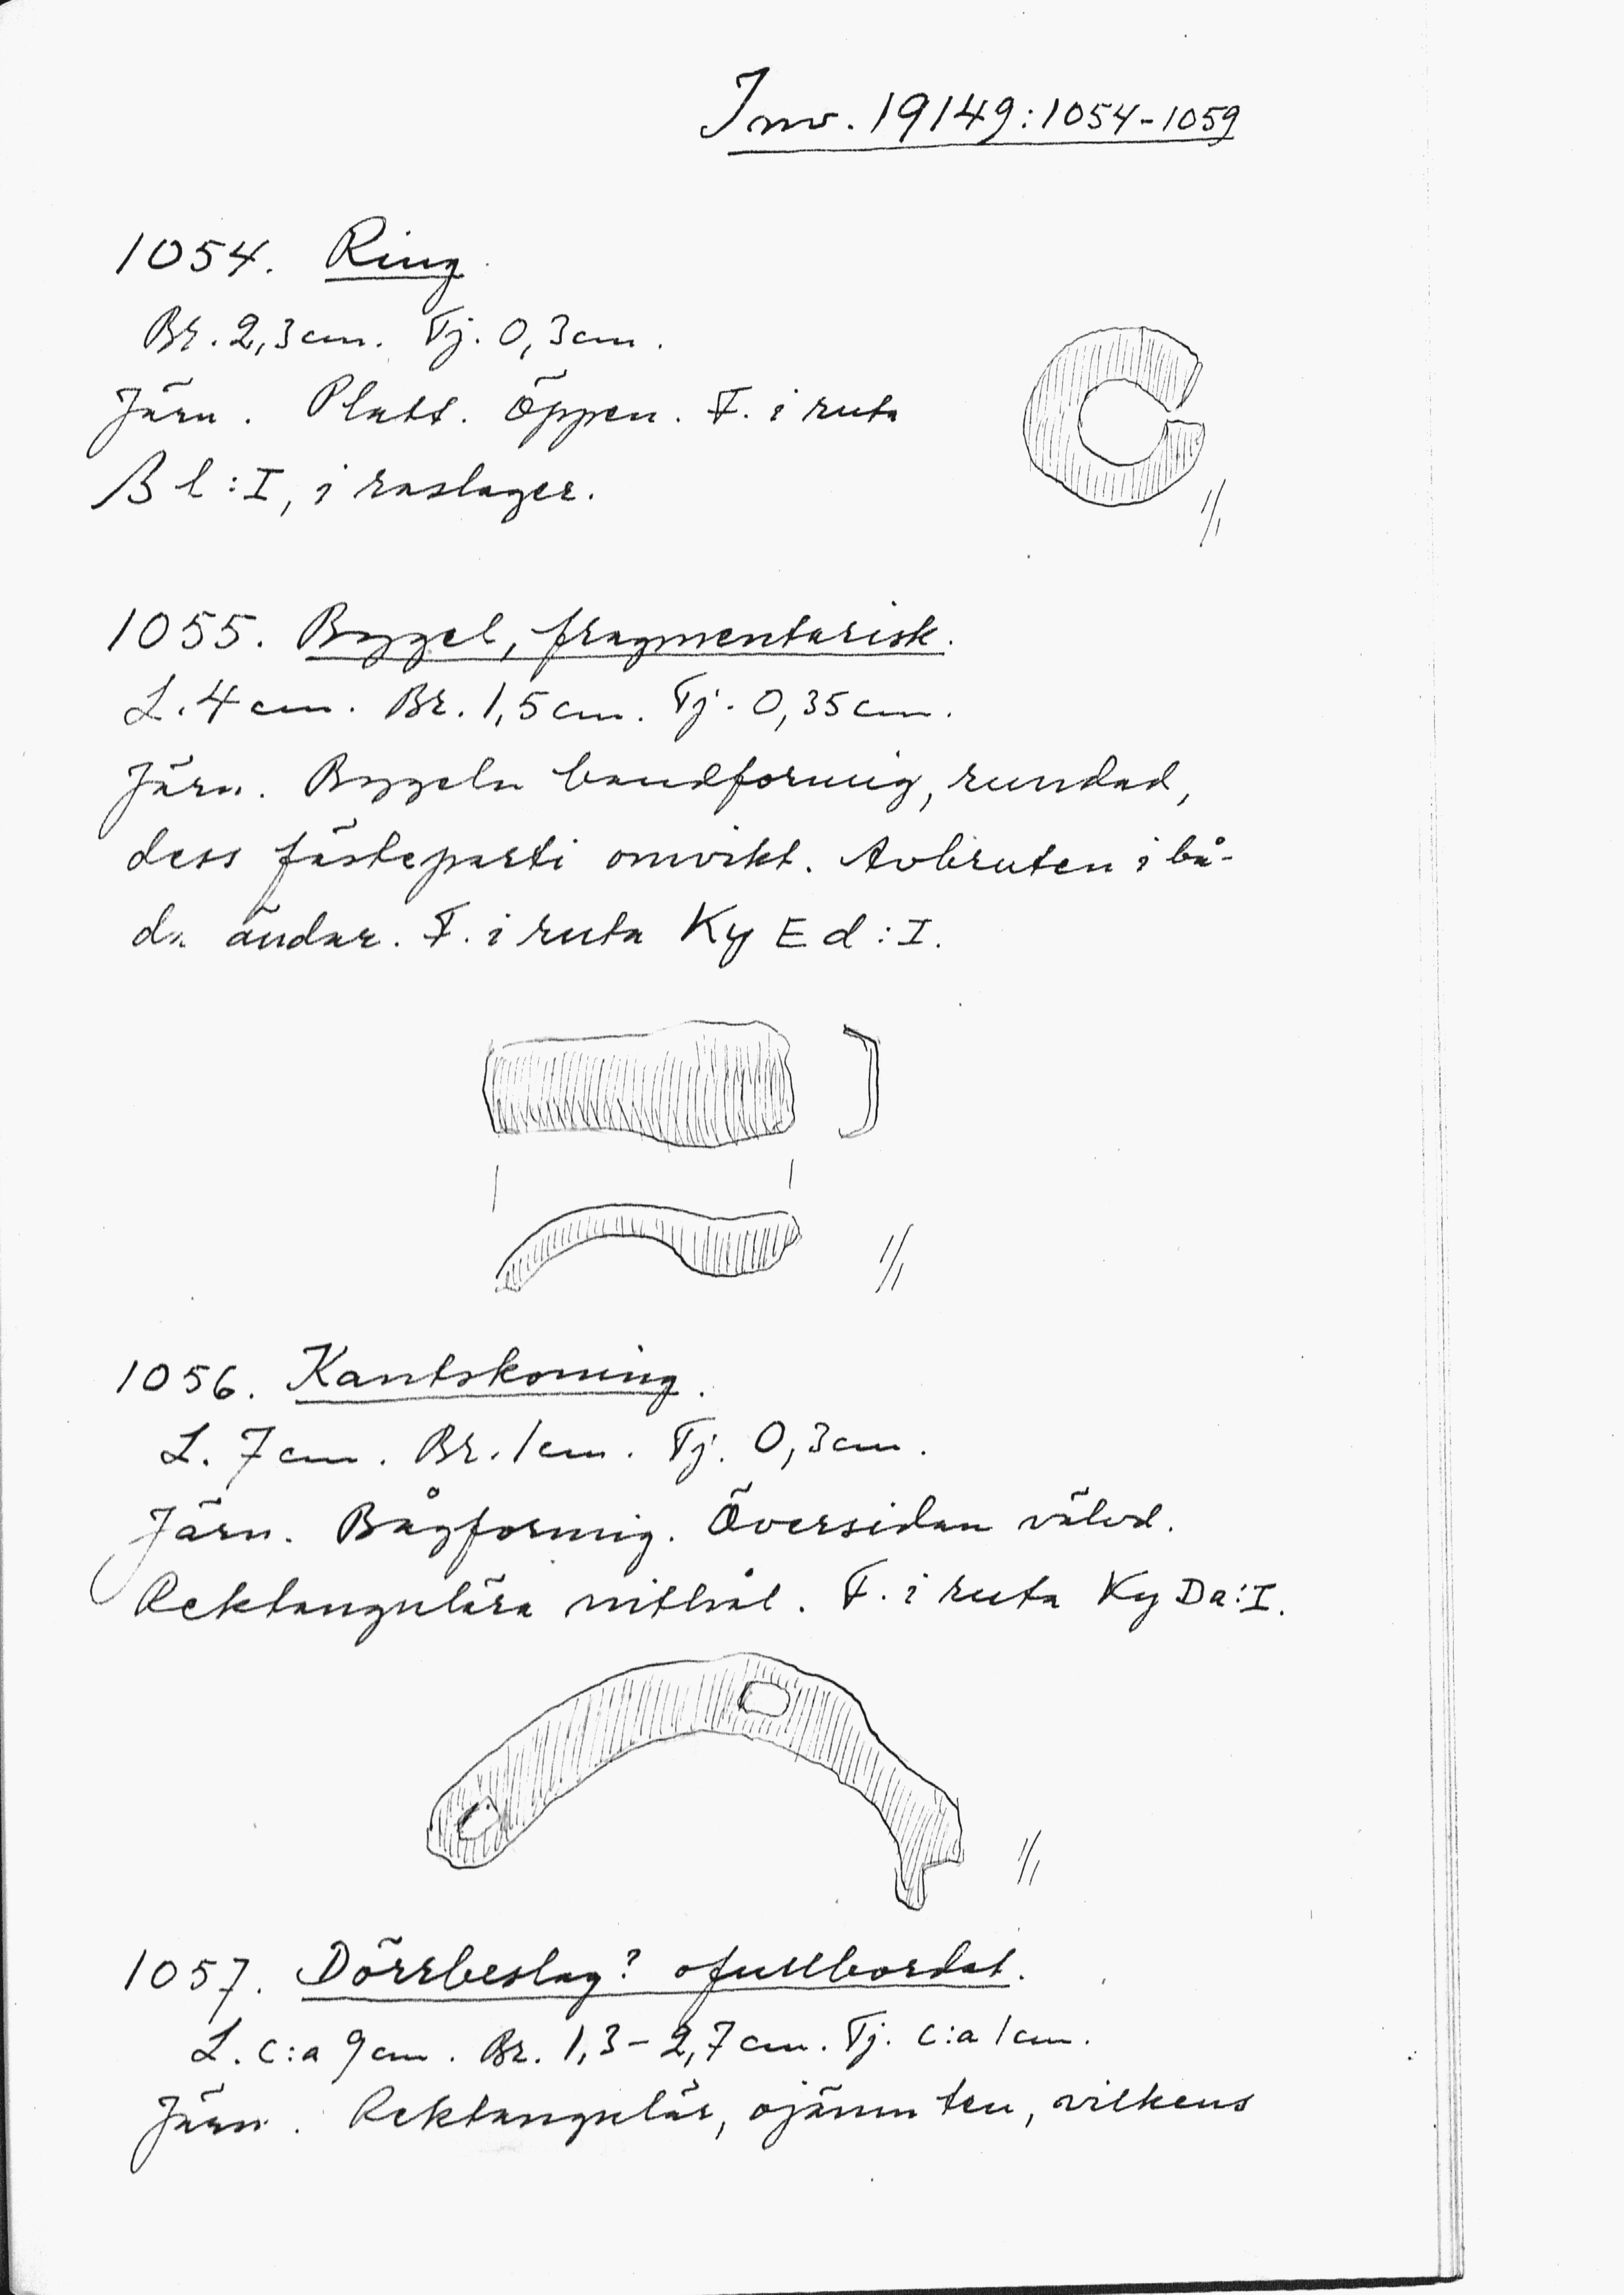 Inv. 19149:1054-1059
1054. Ring.
Br. 2,3 cm. Tj. 0,3 cm.
Järn. Platt. Öppen. F. i ruta
B l:I, i raslager.
1/1
1055. Bygel, fragmentarisk.
L. 4 cm. Br. 1,5 cm. Tj. 0,35 cm.
Järn. Bygeln bandformig, rundad,
dess fästeparti omvikt. Avbruten i bå-
da ändar. F. i ruta Ky E d:I.
1/1
1056. Kantskoning.
L. 7 cm. Br. 1 cm. Tj. 0,3 cm.
Järn. Bågformig. Översidan välvd.
Rektangulära nithål. F. i ruta Ky Da:I.
1/1
1057. Dörrbeslag? ofullbordat.
L. c:a 9 cm. Br. 1,3-2,7 cm. Tj. c:a 1 cm.
Järn. Rektangulär, ojämn ten, vilkens